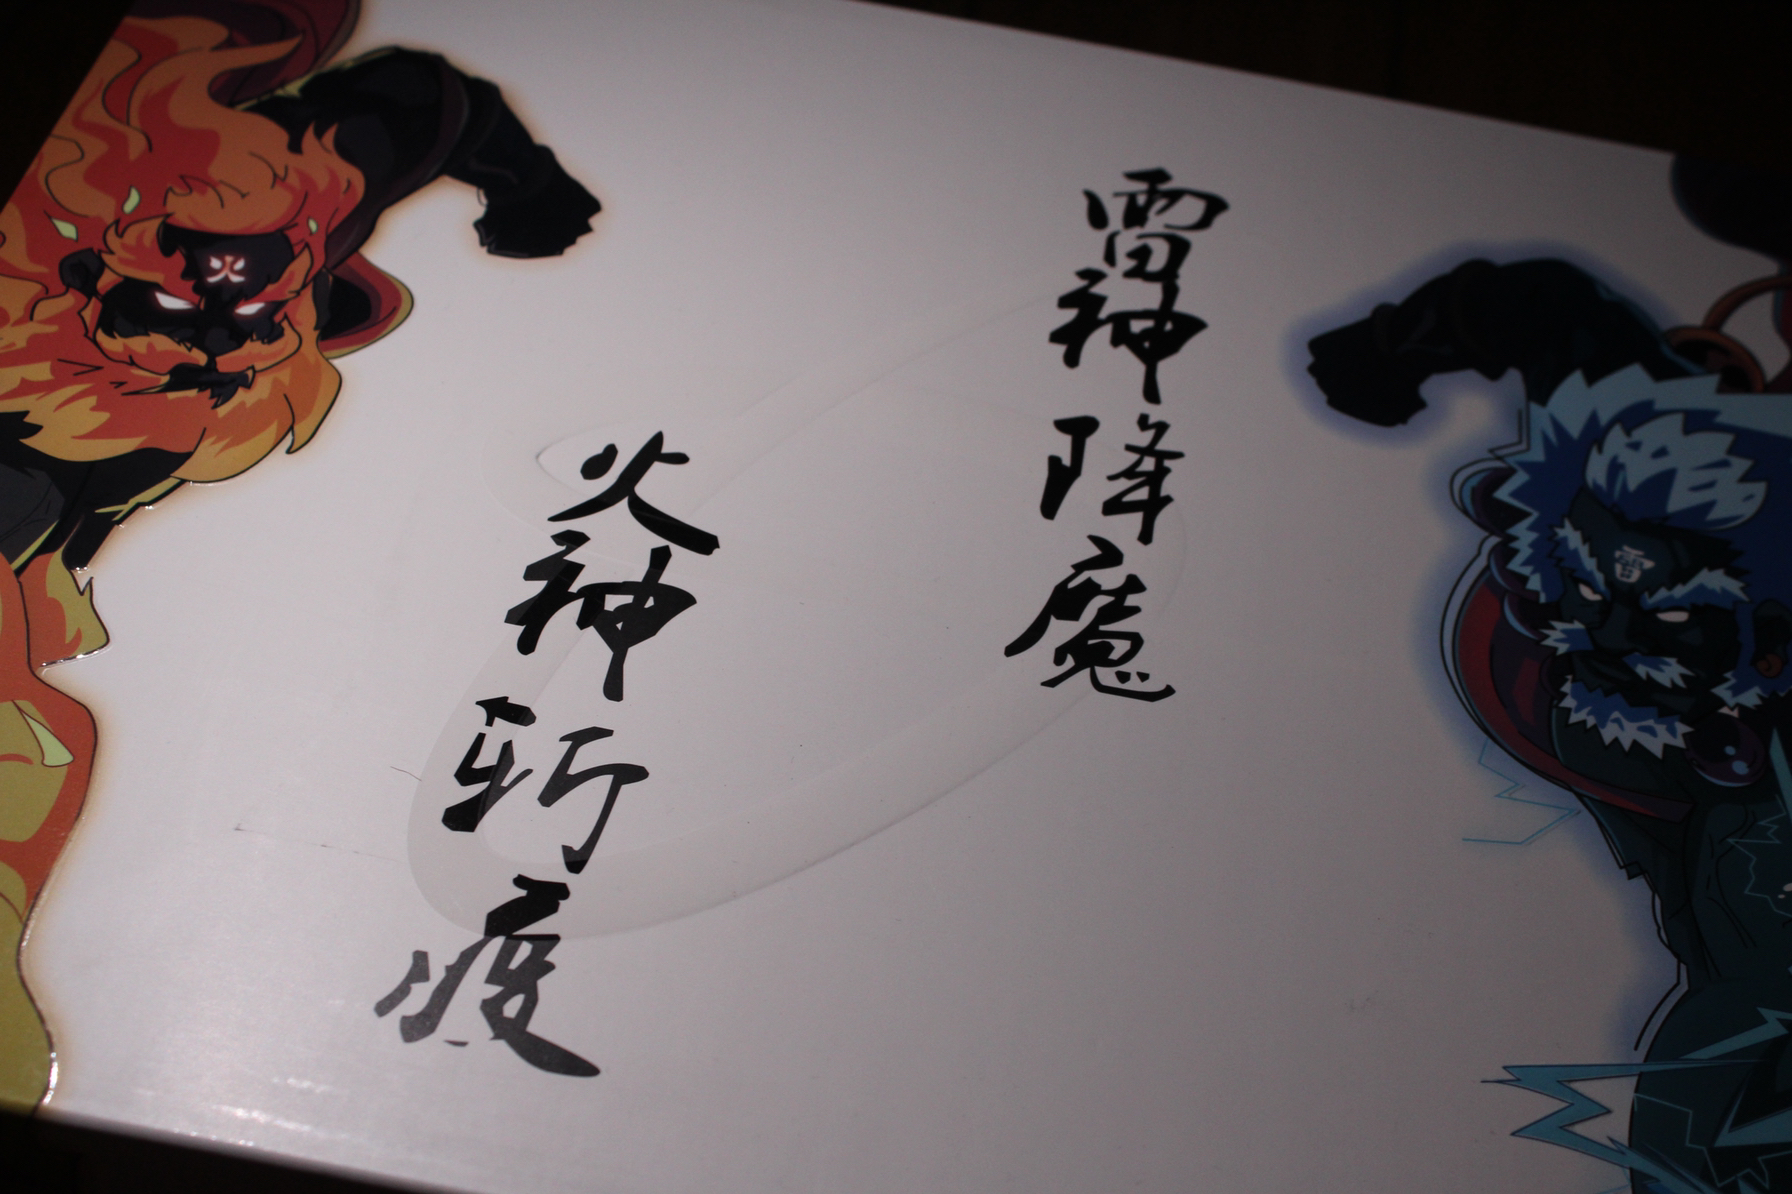 雷神降魔
火神斬疫
火
雷